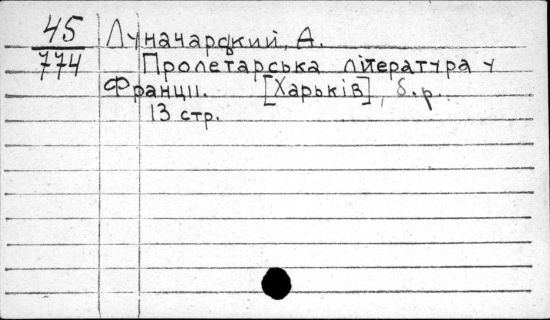 45
774
Луначарский, А.
Пролетарська література у
Франции. [Харькiв], б.р.
13 стр.